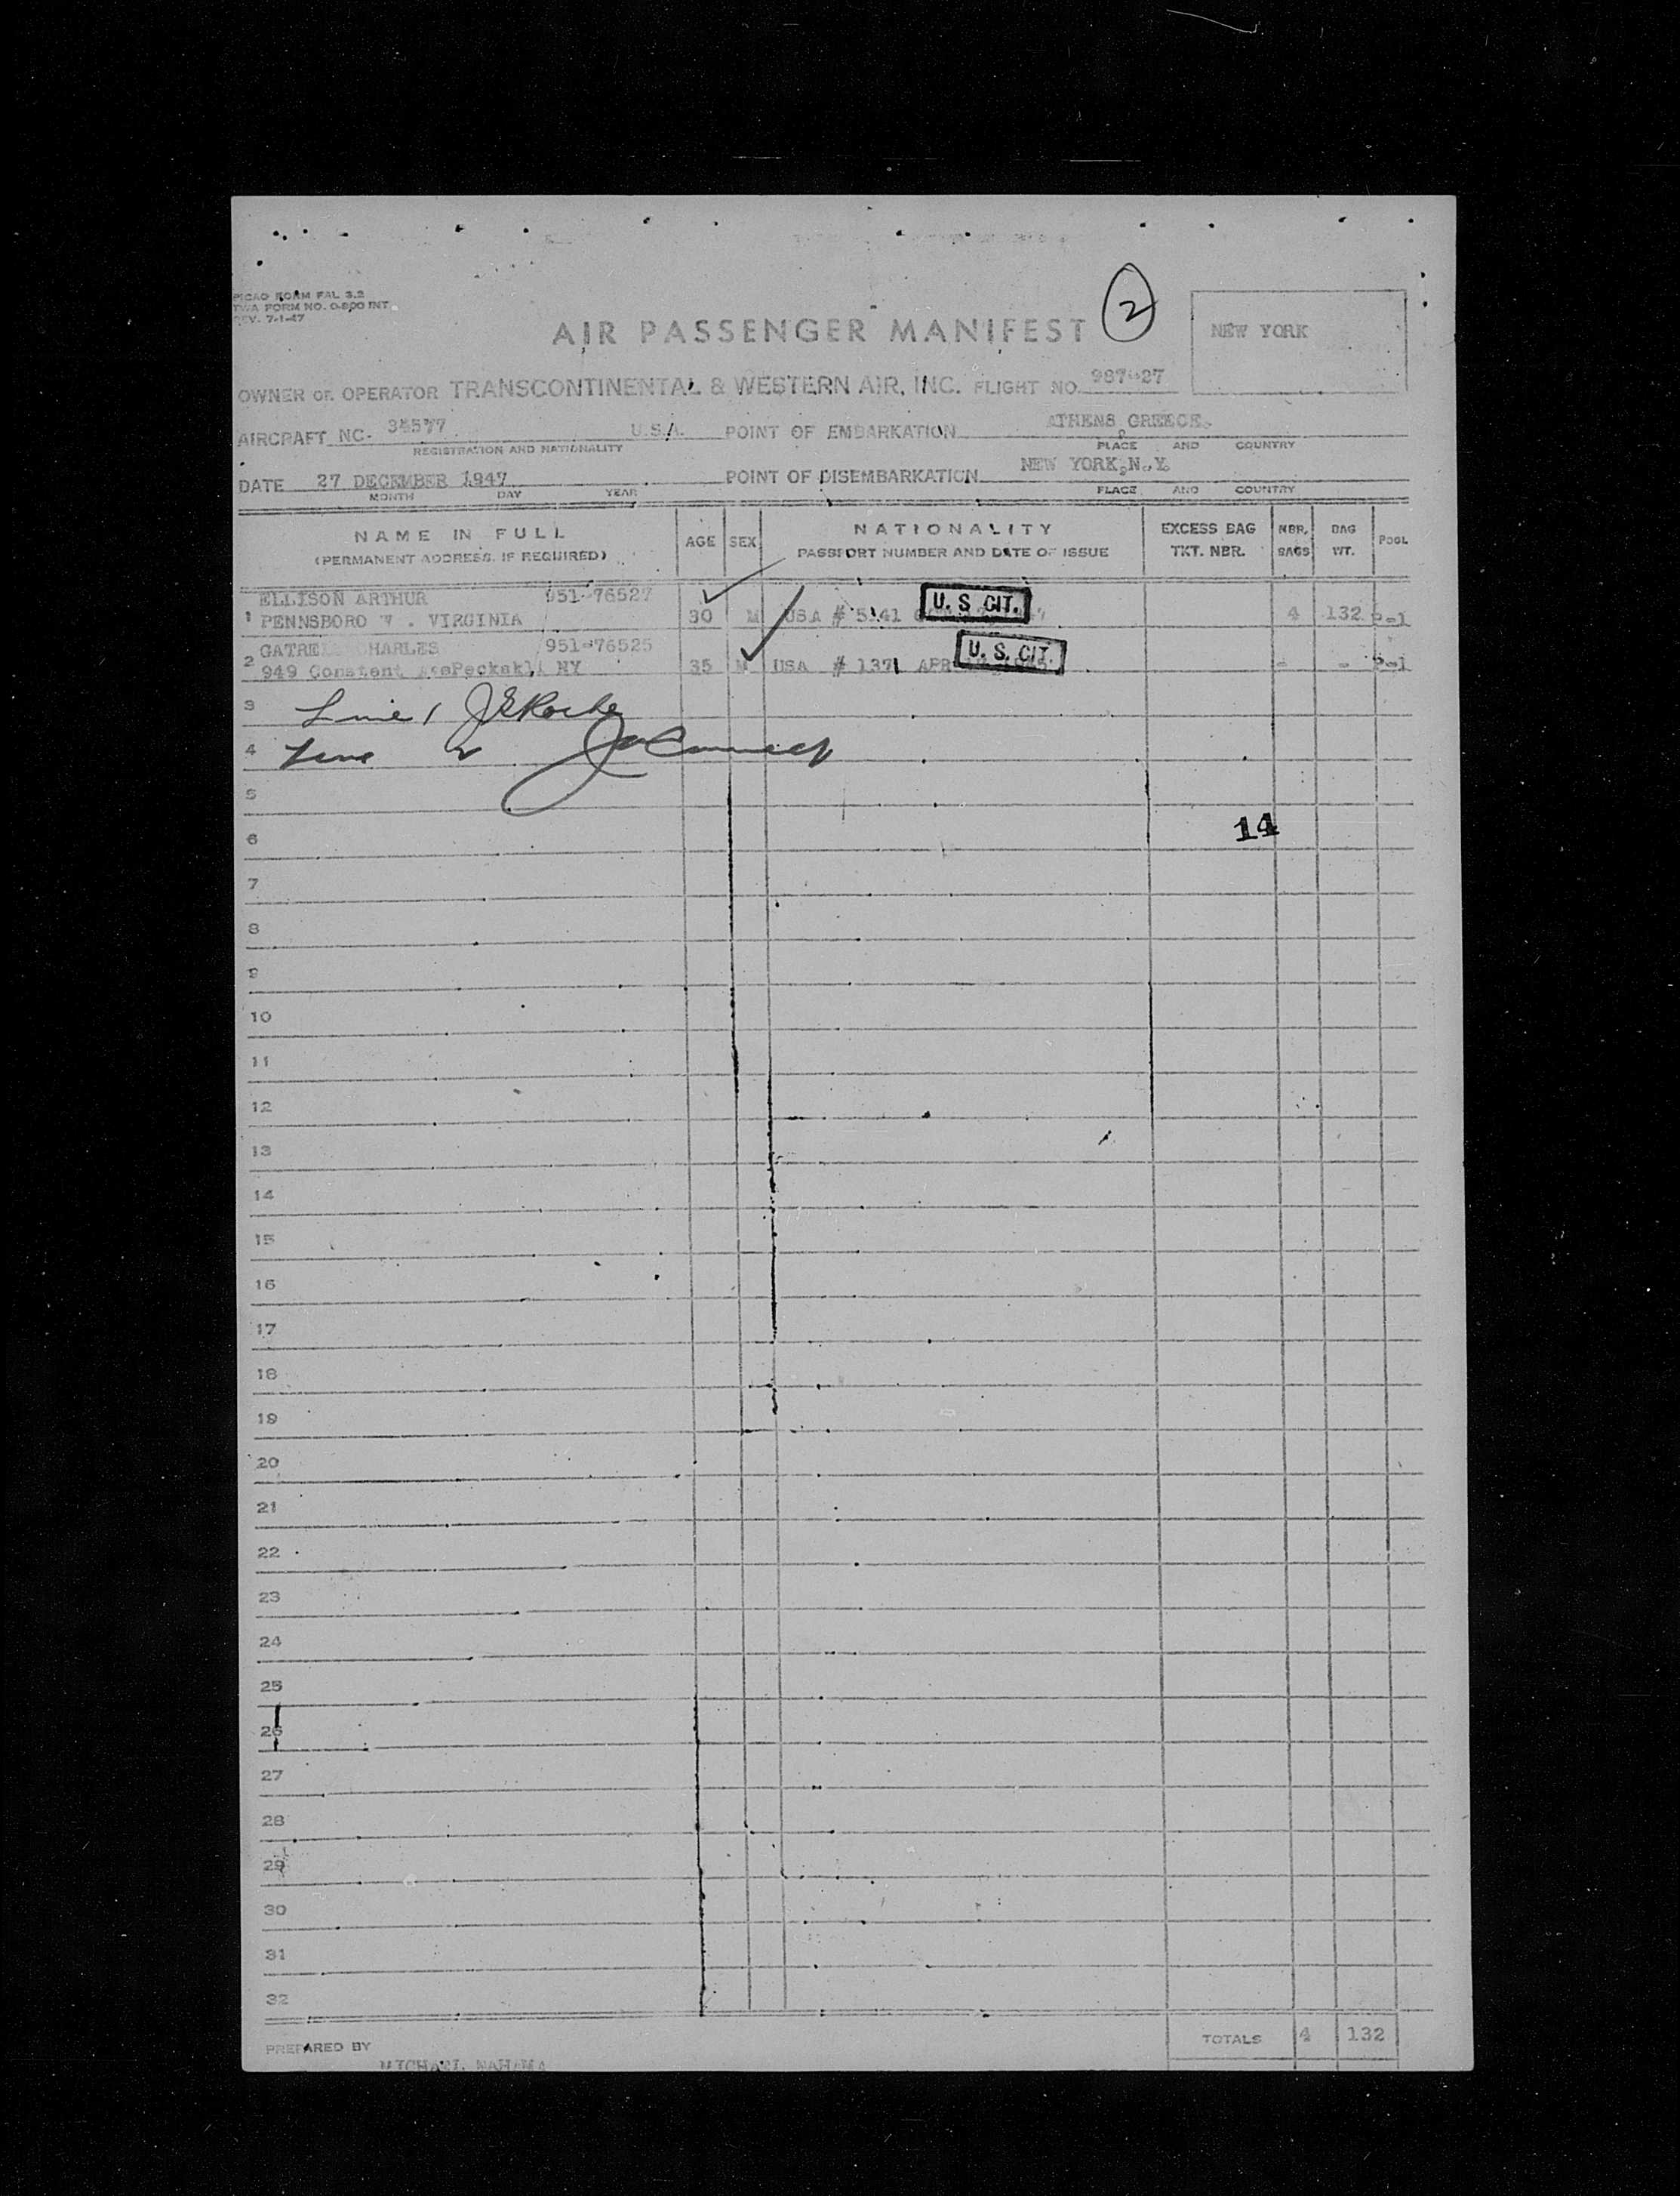 PICAO FORM FAL 3.2
TWA FORM NO. O-800 INT.
REV. 7-1-47
AIR PASSENGER MANIFEST
2
NEW YORK
OWNER OR OPERATOR TRANSCONTINENTAL & WESTERN AIR, INC. FLIGHT NO. 987-27
AIRCRAFT NC- 34577 U.S.A. POINT OF EMBARKATION ATHENS, GREECE.
REGISTRATION AND NATIONALITY PLACE AND COUNTRY
DATE 27 DECEMBER 1947 POINT OF DISEMBARKATION NEW YORK, N.Y.
MONTH DAY YEAR PLACE AND COUNTRY
NAME IN FULL AGE SEX NATIONALITY EXCESS BAG NBR. BAG POOL
(PERMANENT ADDRESS, IF REQUIRED) PASSPORT NUMBER AND DATE OF ISSUE TKT. NBR. BAGS WT.
ELLISON ARTHUR 951-76527
1 PENNSBORO W . VIRGINIA 30 M USA # 5141 U. S. CIT. 4 132 P-1
CHARLES 951-76525
2 949 Constent NY 35 M USA # 1371 APR U. S. CIT. - - P-1
3 Line 1 JERoche
4 Line 2
5
14
6
7
8
9
10
11
12
13
14
15
16
17
18
19
20
21
22
23
24
25
26
27
28
29
30
31
32
TOTALS 4 132
PREPARED BY
MICHAEL